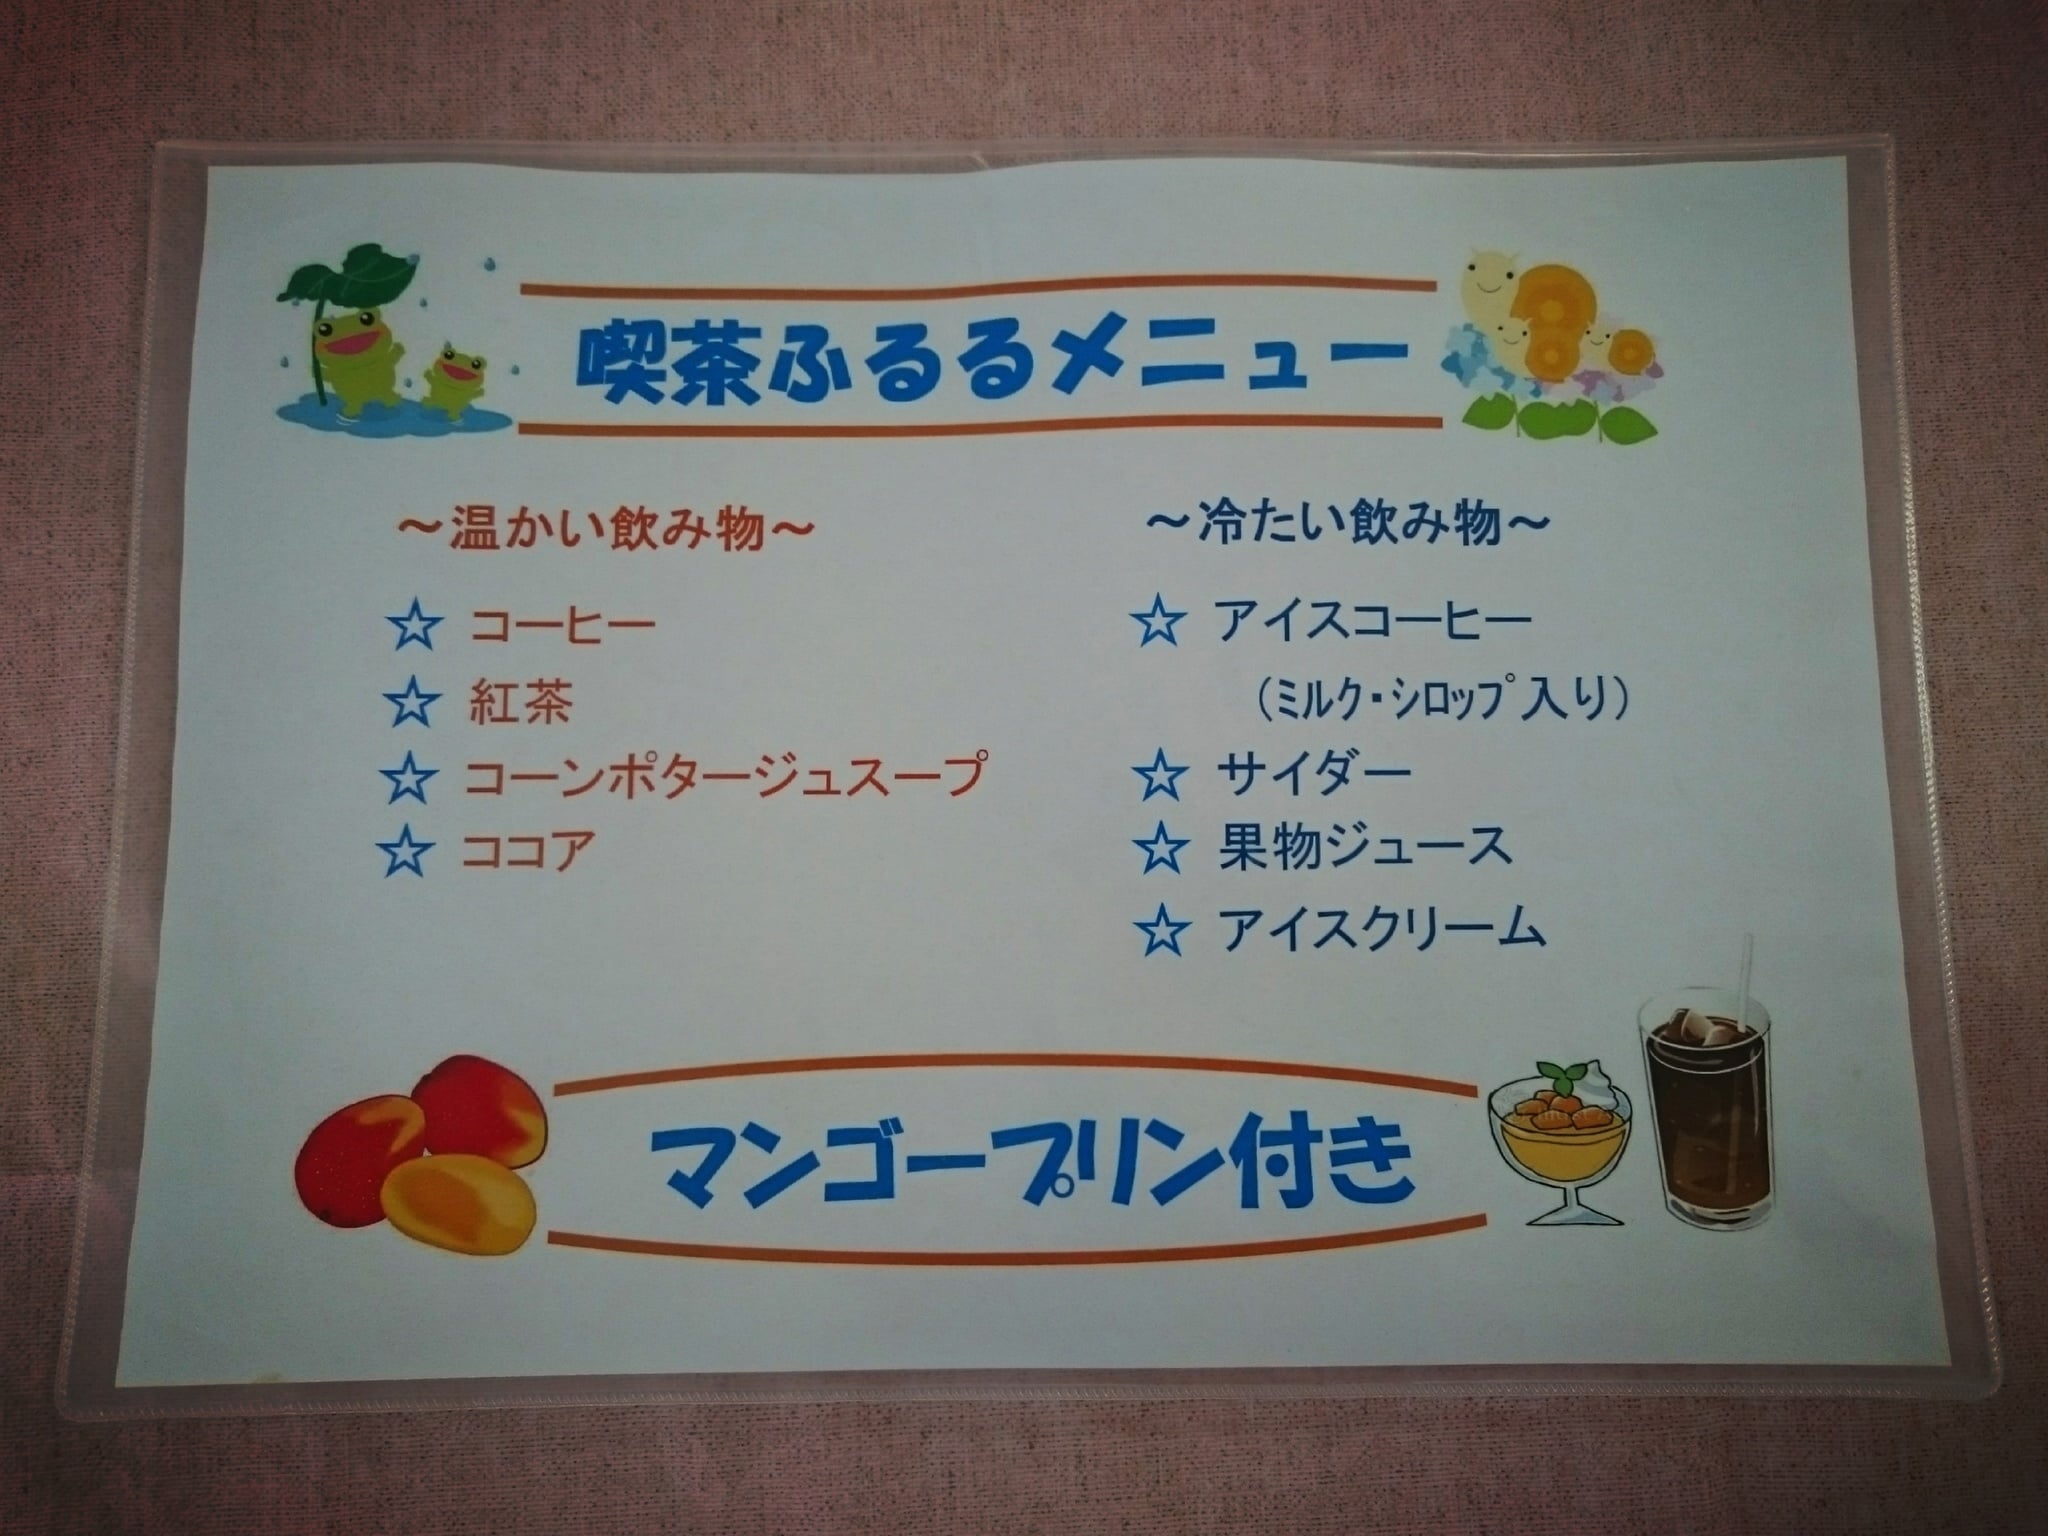 喫茶ふるるメニュー
～温かい飲み物～
☆ コーヒー
☆ 紅茶
☆ コーンポタージュスープ
☆ ココア
～冷たい飲み物～
☆ アイスコーヒー
（ﾐﾙｸ・ｼﾛｯﾌﾟ入り）
☆ サイダー
☆ 果物ジュース
☆ アイスクリーム
マンゴープリン付き